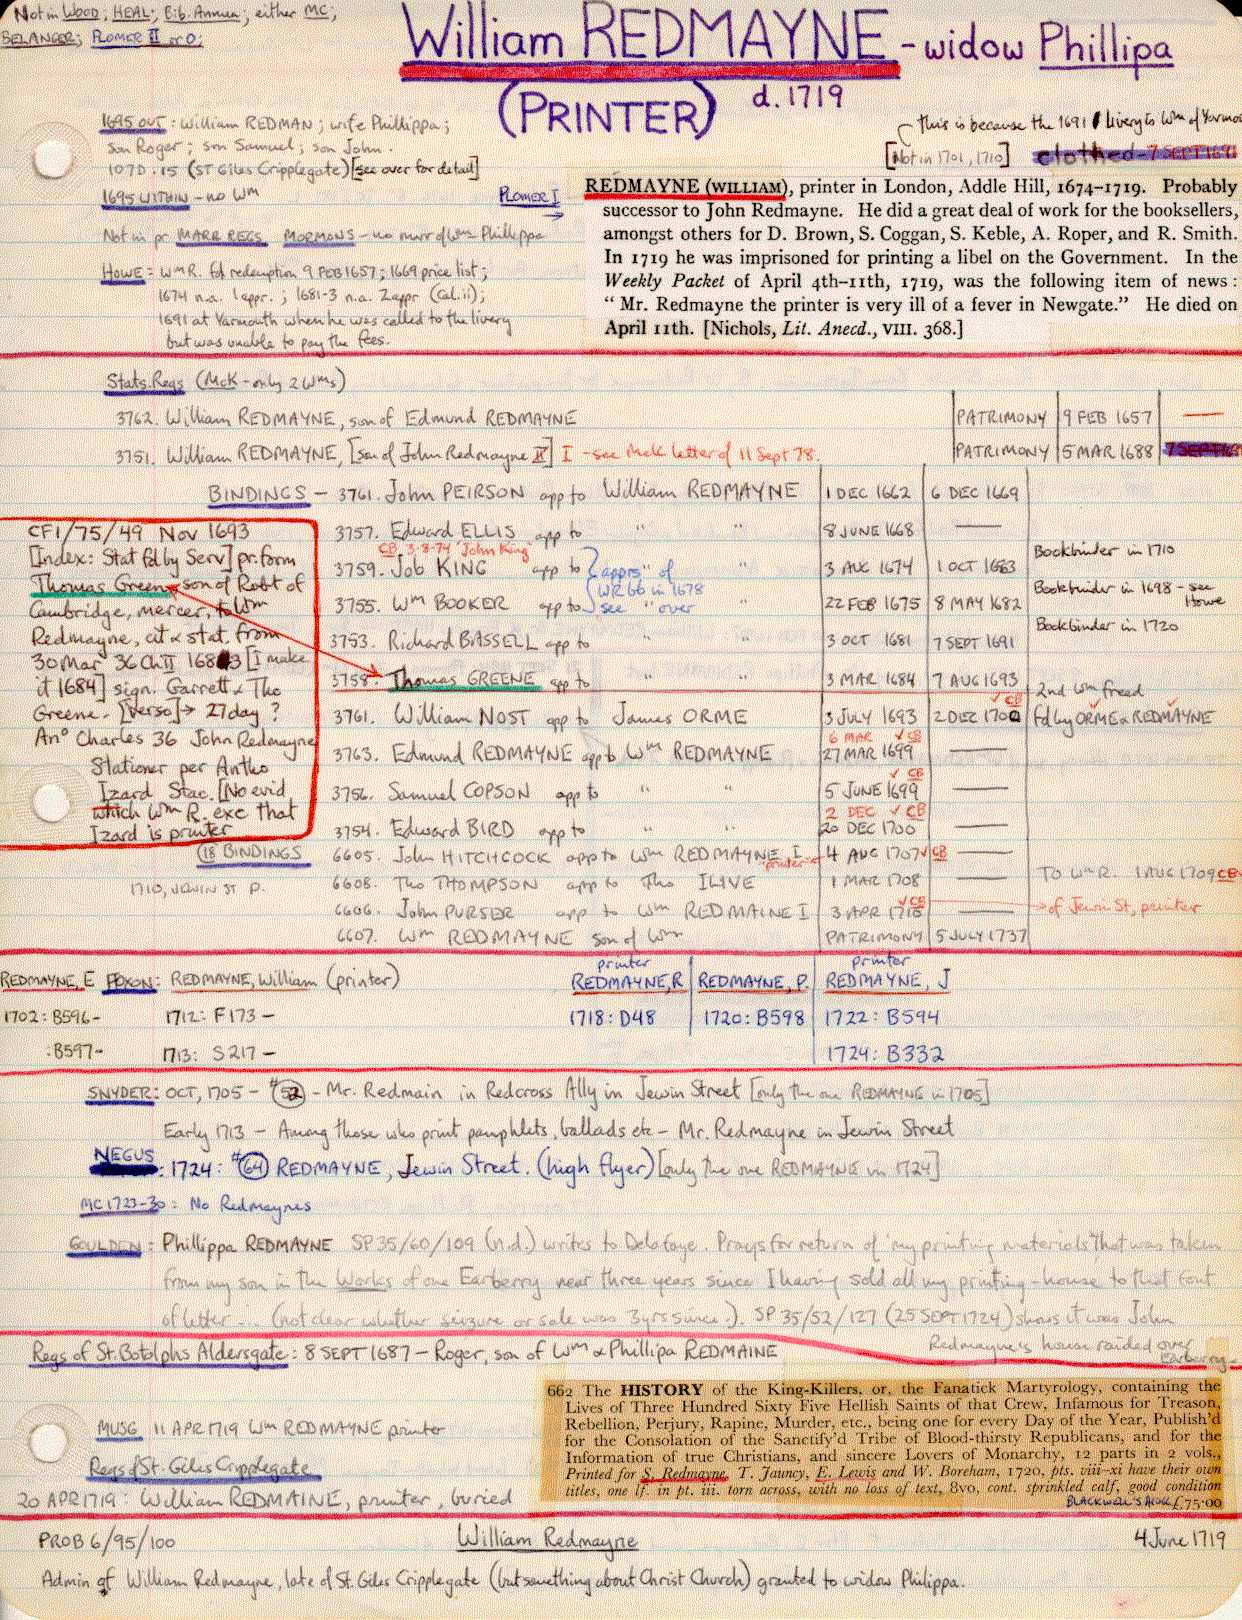 Not in WOOD; HEAL; Bib. Annua; either MC;
BELANGER; PLOMER II or O;
William REDMAYNE - widow Phillipa
(PRINTER) d. 1719
this is because the 1691 livery to Wm of Yarmo
[Not in 1701, 1710] clothed - 7 SEPT 1691
1695 OUT: William REDMAN; wife Phillippa;
son Roger; son Samuel; son John.
107D.15 (ST Giles Cripplegate) [see over for detail]
1695 WITHIN - no Wm
Not in pr. MARR REGS, MORMONS - no marr of Wm Phillippa
HOWE = Wm R. fd redemption 9 FEB 1657; 1669 price list;
1674 n.a. 1 appr.; 1681-3 n.a. 2 appr (Cal. ii);
1691 at Yarmouth when he was called to the livery
but was unable to pay the fees.
PLOMER I
REDMAYNE (WILLIAM), printer in London, Addle Hill, 1674–1719. Probably
successor to John Redmayne. He did a great deal of work for the booksellers,
amongst others for D. Brown, S. Coggan, S. Keble, A. Roper, and R. Smith.
In 1719 he was imprisoned for printing a libel on the Government. In the
Weekly Packet of April 4th–11th, 1719, was the following item of news:
“ Mr. Redmayne the printer is very ill of a fever in Newgate.” He died on
April 11th. [Nichols, Lit. Anecd., VIII. 368.]
Stats. Regs (McK - only 2 Wms)
3762. William REDMAYNE, son of Edmund REDMAYNE PATRIMONY 9 FEB 1657 —
3751. William REDMAYNE, [son of John Redmayne II] I - see McK letter of 11 Sept 78. PATRIMONY 5 MAR 1688 7 SEPT 1691
BINDINGS - 3761. John PEIRSON app to William REDMAYNE 1 DEC 1662 6 DEC 1669
3757. Edward ELLIS app to " " 8 JUNE 1668 —
CB 3-8-74 'John King'
3759. Job KING app to " " 3 AUG 1674 1 OCT 1683 Bookbinder in 1710
{apprs of
WR bb in 1678
see over
3755. Wm BOOKER app to " " 22 FEB 1675 8 MAY 1682 Bookbinder in 1698 - see Howe
3753. Richard BASSELL app to " " 3 OCT 1681 7 SEPT 1691 Bookbinder in 1720
3758. Thomas GREENE app to " " 3 MAR 1684 7 AUG 1693
2nd Wm freed
3761. William NOST app to James ORME 3 JULY 1693 2 DEC 1700 ✓ CB Fd by ORME & REDMAYNE
3763. Edmund REDMAYNE app to Wm REDMAYNE 6 MAR ✓ CB 27 MAR 1699 —
3756. Samuel COPSON app to " " ✓ CB 5 JUNE 1699 —
3754. Edward BIRD app to " " 2 DEC ✓ CB 20 DEC 1700 —
6605. John HITCHCOCK app to Wm REDMAYNE I "printer" 4 AUG 1707 ✓ CB —
6608. Tho THOMPSON app to Tho ILIVE 1 MAR 1708 TO Wm R. 1 AUG 1709 CB
6606. John PURSER app to Wm REDMAINE I 3 APR 1710 ✓ CB — of Jewin St, printer
6607. Wm REDMAYNE son of Wm PATRIMONY 5 JULY 1737
CF1/75/49 Nov 1693
[Index: Stat fd by Serv] pr. form
Thomas Green, son of Robt of
Cambridge, mercer, to Wm
Redmayne, cit & stat. from
30 Mar 36 Ch II 1683 [I make
it 1684] sign. Garrett & Tho
Greene. [verso] → 27 day ?
Ano Charles 36 John Redmayne
Stationer per Antho
Izard Stac. [No evid
which Wm R. exc that
Izard is printer
(18 BINDINGS
1710, JEWIN ST P.
REDMAYNE, E FOXON: REDMAYNE, William (printer) printer REDMAYNE, R REDMAYNE, P. printer REDMAYNE, J
1702: B596- 1712: F173 - 1718: D48 1720: B598 1722: B594
:B597- 1713: S217 - 1724: B332
SNYDER: OCT, 1705 - #52 - Mr. Redmain in Redcross Ally in Jewin Street [only the one REDMAYNE in 1705]
Early 1713 - Among those who print pamphlets, ballads etc - Mr. Redmayne in Jewin Street
NEGUS: 1724: #64 REDMAYNE, Jewin Street. (high flyer) [only the one REDMAYNE in 1724]
MC 1723-30: No Redmaynes
GOULDEN: Phillippa REDMAYNE SP35/60/109 (n.d.) writes to Delafaye. Prays for return of 'my printing materials that was taken
from my son in the Works of one Earberry near three years since I having sold all my printing-house to that font
of letter... (not clear whether seizure or sale was 3 yrs since). SP 35/52/127 (25 SEPT 1724) shows it was John
Redmayne's house raided over
Earberry -
Regs of St. Botolphs Aldersgate: 8 SEPT 1687 - Roger, son of Wm & Phillipa REDMAINE
662 The HISTORY of the King-Killers, or, the Fanatick Martyrology, containing the
Lives of Three Hundred Sixty Five Hellish Saints of that Crew, Infamous for Treason,
Rebellion, Perjury, Rapine, Murder, etc., being one for every Day of the Year, Publish'd
for the Consolation of the Sanctify'd Tribe of Blood-thirsty Republicans, and for the
Information of true Christians, and sincere Lovers of Monarchy, 12 parts in 2 vols.,
Printed for S. Redmayne, T. Jauncy, E. Lewis and W. Boreham, 1720, pts. viii–xi have their own
titles, one lf. in pt. iii. torn across, with no loss of text, 8vo, cont. sprinkled calf, good condition
BLACKWELL'S £75·00
MUSG 11 APR 1719 Wm REDMAYNE printer
Regs of St. Giles Cripplegate
20 APR 1719: William REDMAINE, printer, buried
PROB 6/95/100 William Redmayne 4 June 1719
Admin of William Redmayne, late of St. Giles Cripplegate (but something about Christ Church) granted to widow Philippa.